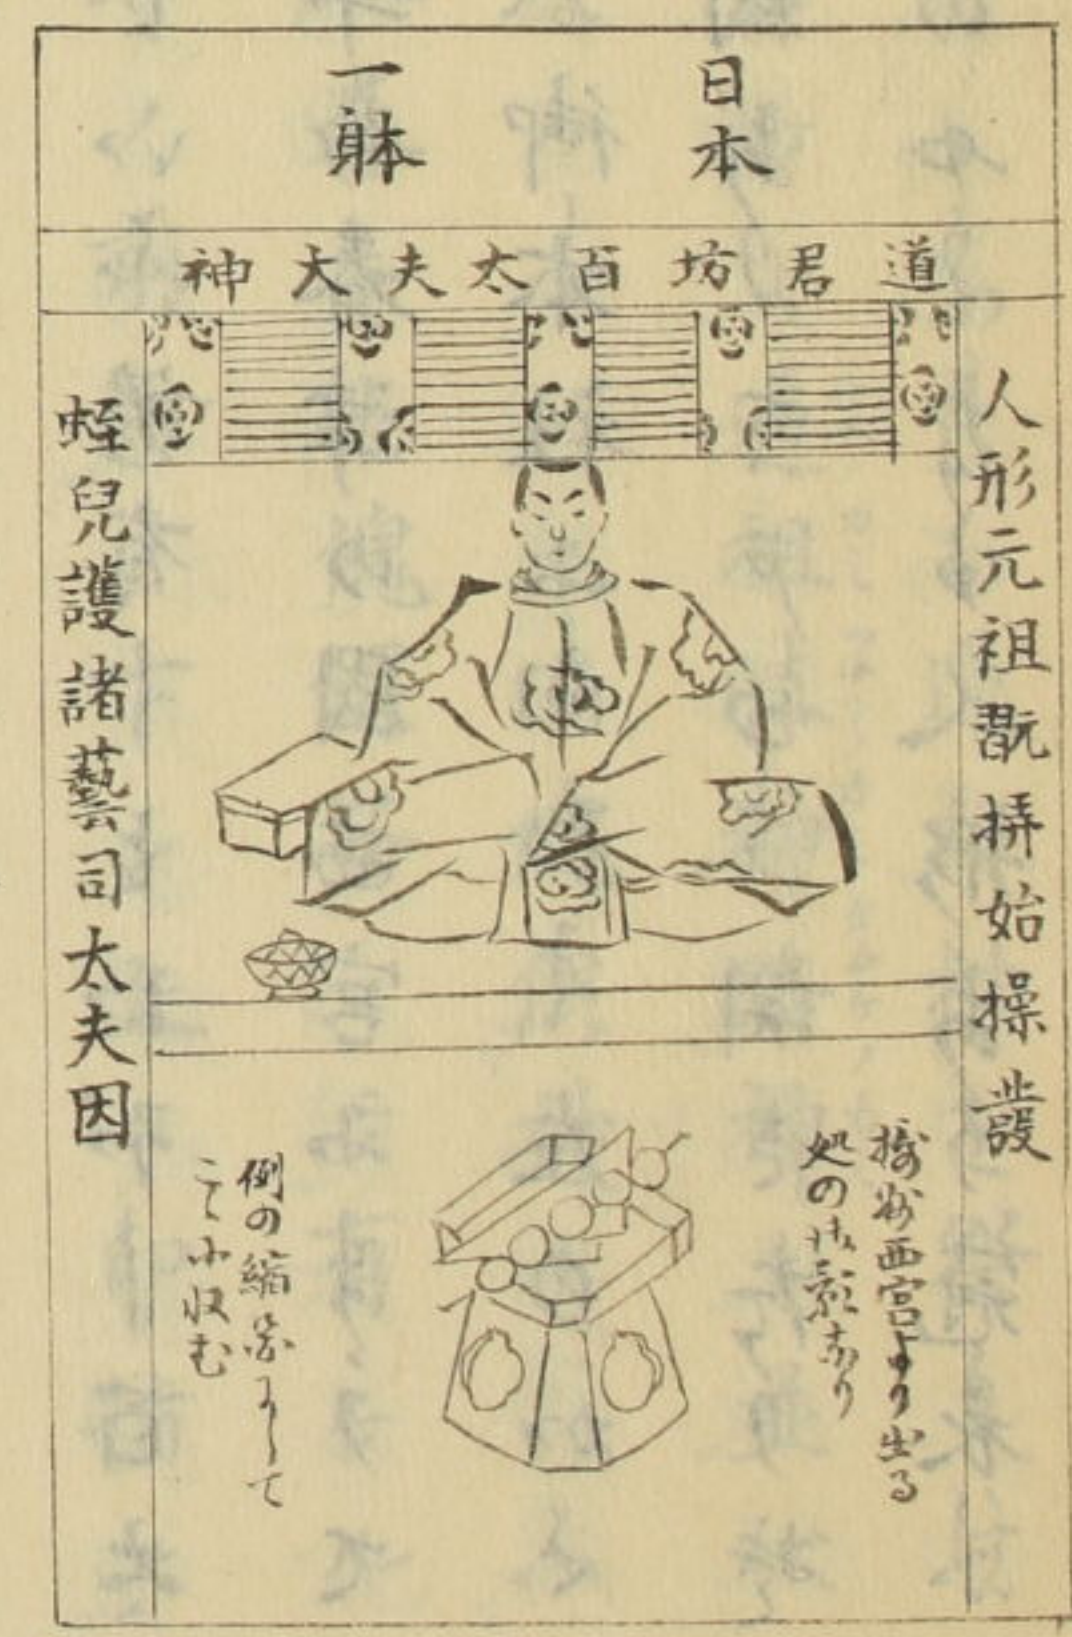 日本
一躰
道君坊百太夫大神
人形元祖翫揌始操發
蛭兒護諸藝司太夫因
摂州西宮より出る
処の御影なり
例の縮図にして
こゝに収む